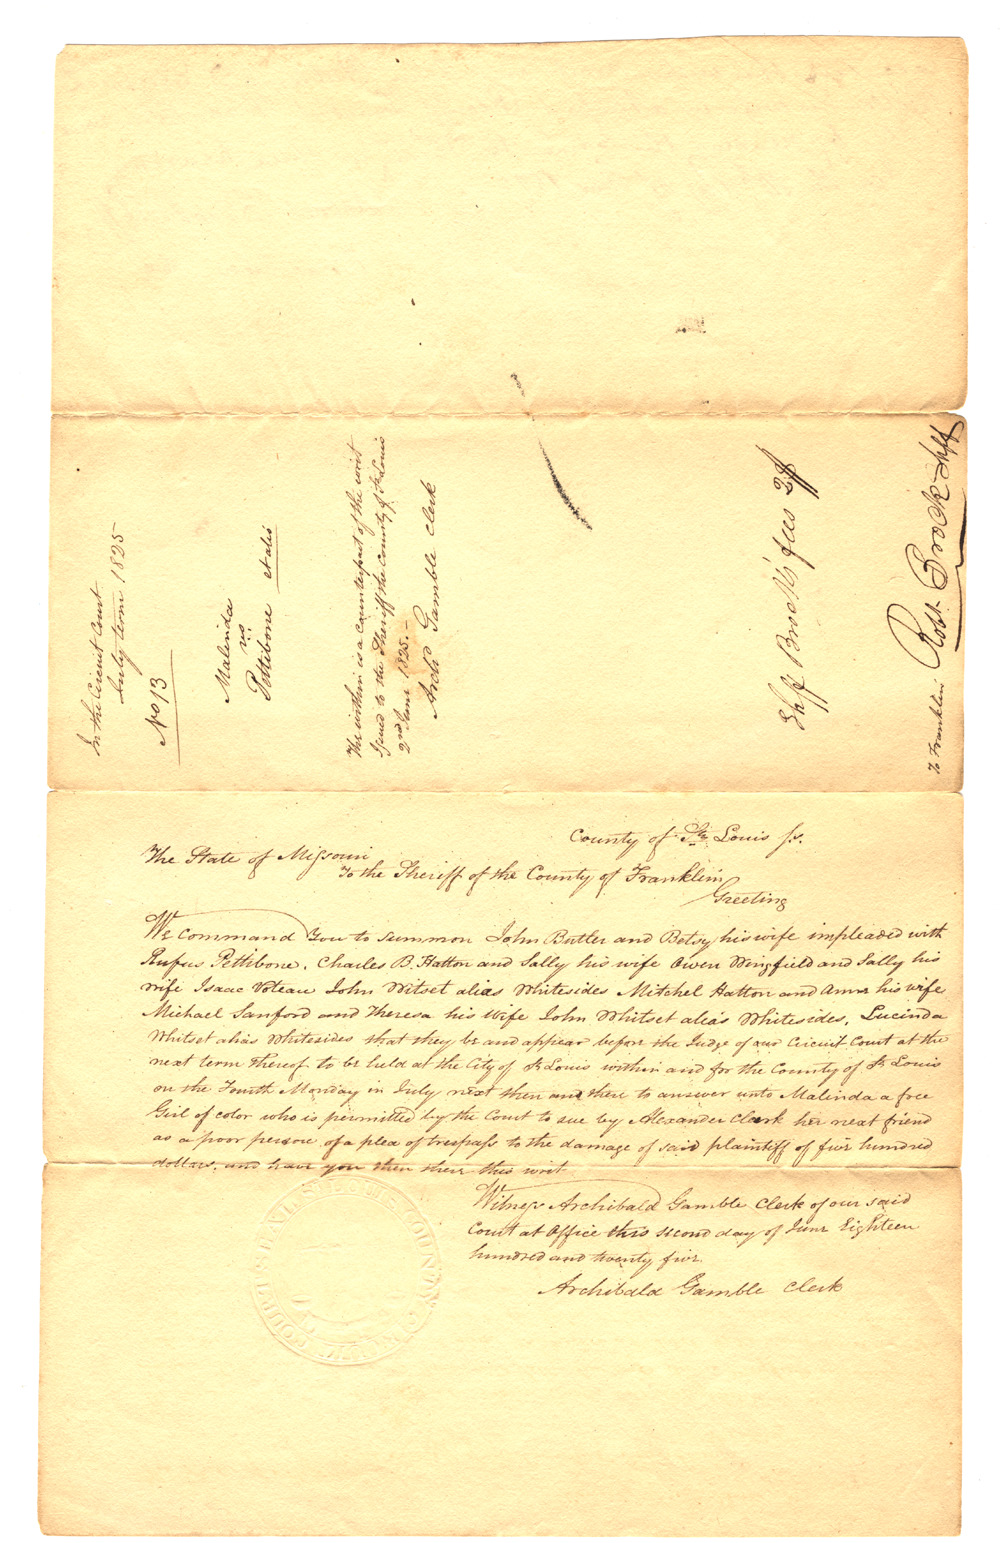 In the Circuit Court
July term 1825
No 13
Malinda
vs
Pettibone et alis
The within is a counterpart of the writ
issued to the Sheriff the County of St Louis
2nd June 1825.-
Archd Gamble Clerk
Shff Brock's fees
To Franklin
Robt Brock Shff
County of St Louis ss.
The State of Missouri
To the Sheriff of the County of Franklin
Greeting
We Command You to summon John Butler and Betsy his wife impleaded with
Rufus Pettibone, Charles B. Hatton and Sally his wife Owen Wingfield and Sally his
wife Isaac Voteau John Witset alias Whitesides Mitchel Hatton and Anna his wife
Michael Sanford and Theresa his wife John Whitset alias Whitesides, Lucinda
Whitset alias Whitesides that they be and appear before the Judge of our Circuit Court at the
next term thereof to be held at the City of St Louis within and for the County of St Louis
on the Fourth Monday in July next then and there to answer unto Malinda a free
Girl of color who is permitted by the Court to sue by Alexander Clark her next friend
as a poor person of a plea of trespass to the damage of said plaintiff of five hundred
dollars, and have you then there this writ
Witness Archibald Gamble Clerk of our said
Court at Office this second day of June Eighteen
hundred and twenty five.
Archibald Gamble Clerk